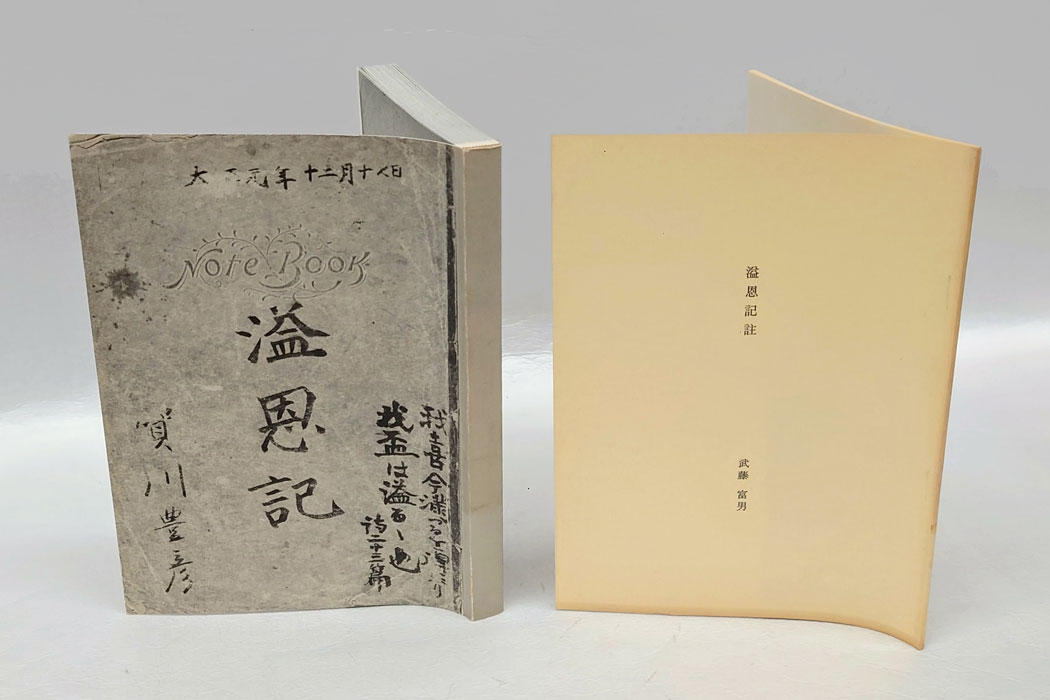 大正元年十二月十八日
Note Book
我喜今
我盃は溢るゝ也
詩二十三篇
溢恩記
賀川豊彦
溢恩記註
武藤富男